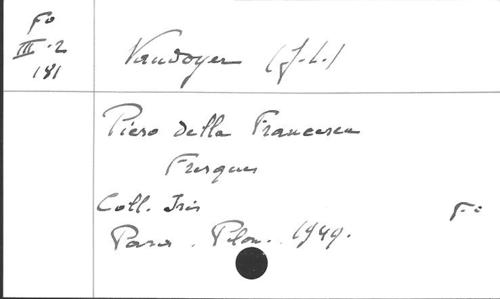 Fo
III.2
181
Vaudoyer (J.-L.)
Piero della Francesca
Fresques
Coll. Iris
Paris. Plon. 1949.
F.: